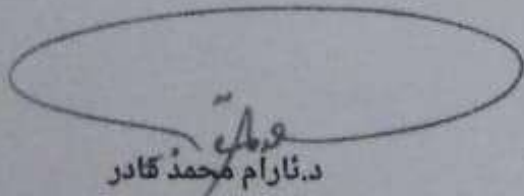 د.ئارام محمد قادر